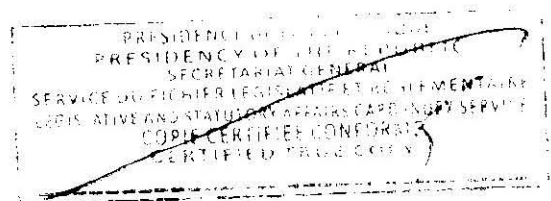 PRESIDENCE DE
PRESIDENCY OF THE REPUBLIC
SECRETARIAT GENERAL
SERVICE DU FICHIER LEGISLATIF ET REGLEMENTAIRE
LEGISLATIVE AND STATUTORY AFFAIRS CARD INDEX SERVICE
COPIE CERTIFIEE CONFORME
CERTIFIED TRUE COPY